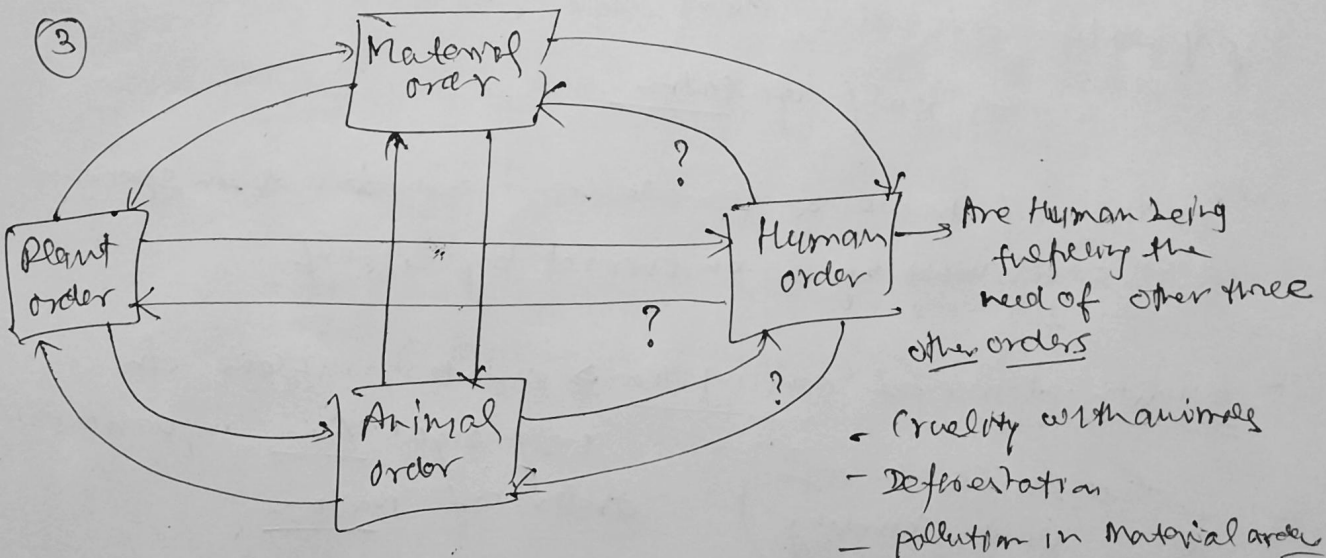 3
Material
order
?
Plant
order
Human
order
Are Human being
fulfilling the
need of other three
other orders
?
?
Animal
order
- Cruelity with animals
- Deforestation
- pollution in Material order